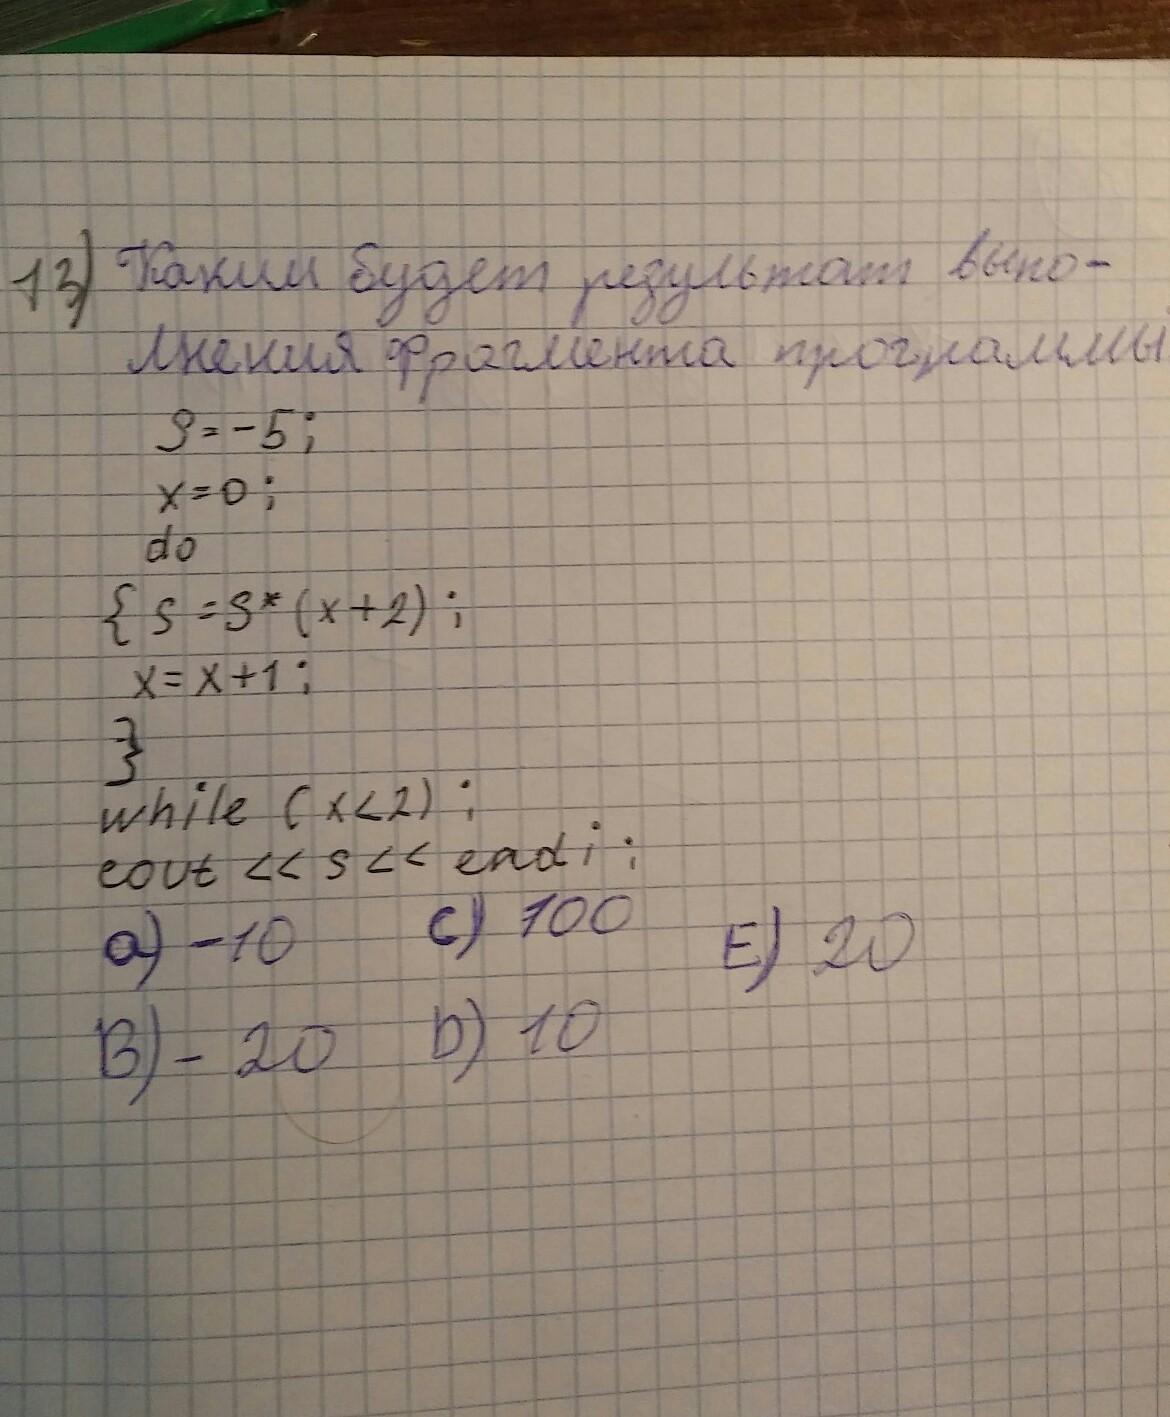 13) Каким будет результат выпо-
лнения фрагмента программы
S=-5;
x=0;
do
{ s=S*(x+2);
x=x+1;
}
while (x<2);
cout << s << endi;
a) -10 C) 100 E) 20
B) - 20 D) 10